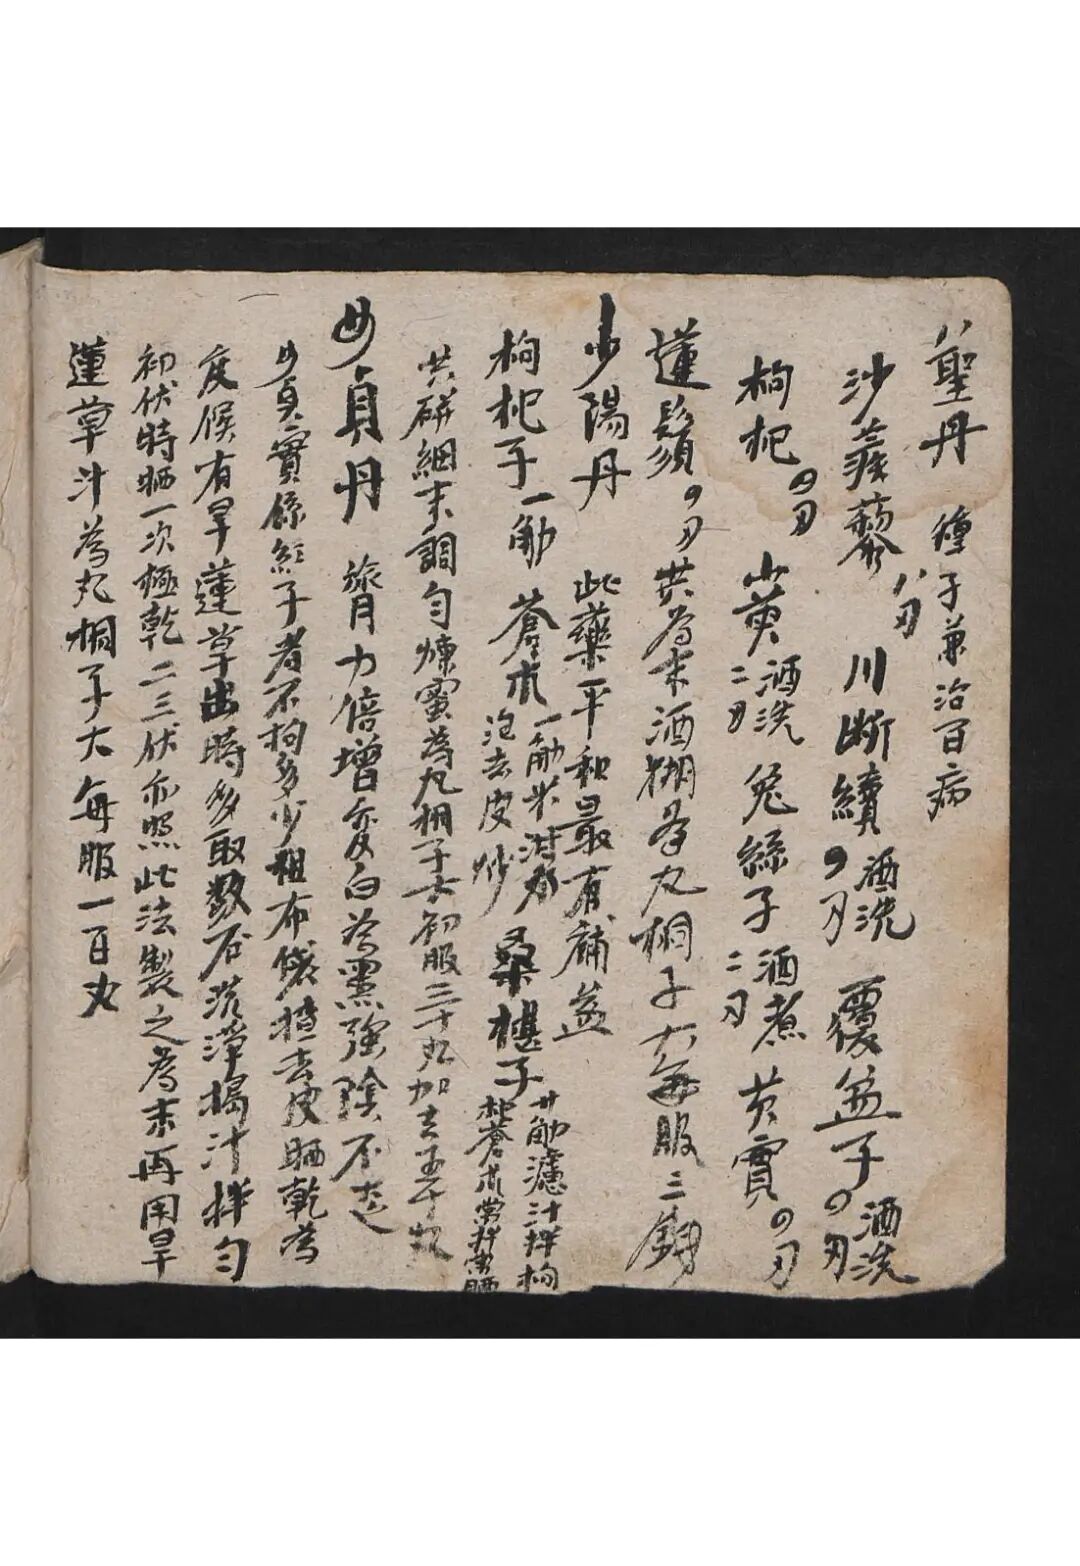 八聖丹 種子兼治百病
沙蒺藜八刃 川斷續酒洗 覆盆子酒洗
枸杞 山萸酒洗二刃 兔絲子酒煮二刃 芡實
蓮鬚 共為末酒糊為丸桐子大每服三錢
少陽丹 此藥平和最有補益
枸杞子一觔 蒼朮一觔米泔泡去皮炒 桑椹子廿觔濾汁拌枸杞蒼朮
共研細末調勻煉蜜為丸桐子大初服三十丸加至五十丸
女貞丹 膂力倍增變白為黑強陰不走
女貞實係紅子者不拘多少粗布袋揸去皮晒乾為
度候有旱蓮草出時多取數石洗淨搗汁拌勻
初伏時晒一次極乾二三伏亦照此法製之為末再用旱
蓮草汁為丸桐子大每服一百丸